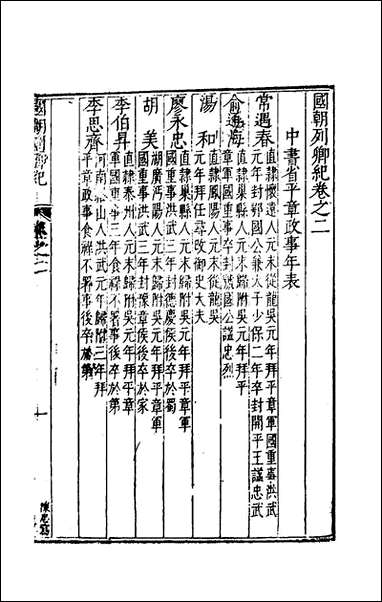 國朝列卿紀卷之二
中書省平章政事年表
常遇春
直隸懷遠人元末從龍吳元年拜平章軍國重事洪武
元年封鄂國公兼太子少保二年卒封開平王謚忠武
俞通海
直隸巢縣人元末歸附吳元年拜平
章軍國重事卒封虢國公謚忠烈
湯和
直隸鳳陽人元末從龍吳
元年拜任尋改御史大夫
廖永忠
直隸巢縣人元末歸附吳元年拜平章軍
國重事洪武三年封德慶侯後卒於蜀
胡美
湖廣沔陽人元末歸附吳元年拜平章軍
國重事洪武三年封豫章侯後卒於家
李伯昇
直隸泰州人元末歸附吳元年拜平章
軍國重事三年食祿不署事後卒於第
李思齊
河南羅山人洪武元年歸附三年拜
平章政事食祿不署事後卒於第
國朝列卿紀
卷之二
一